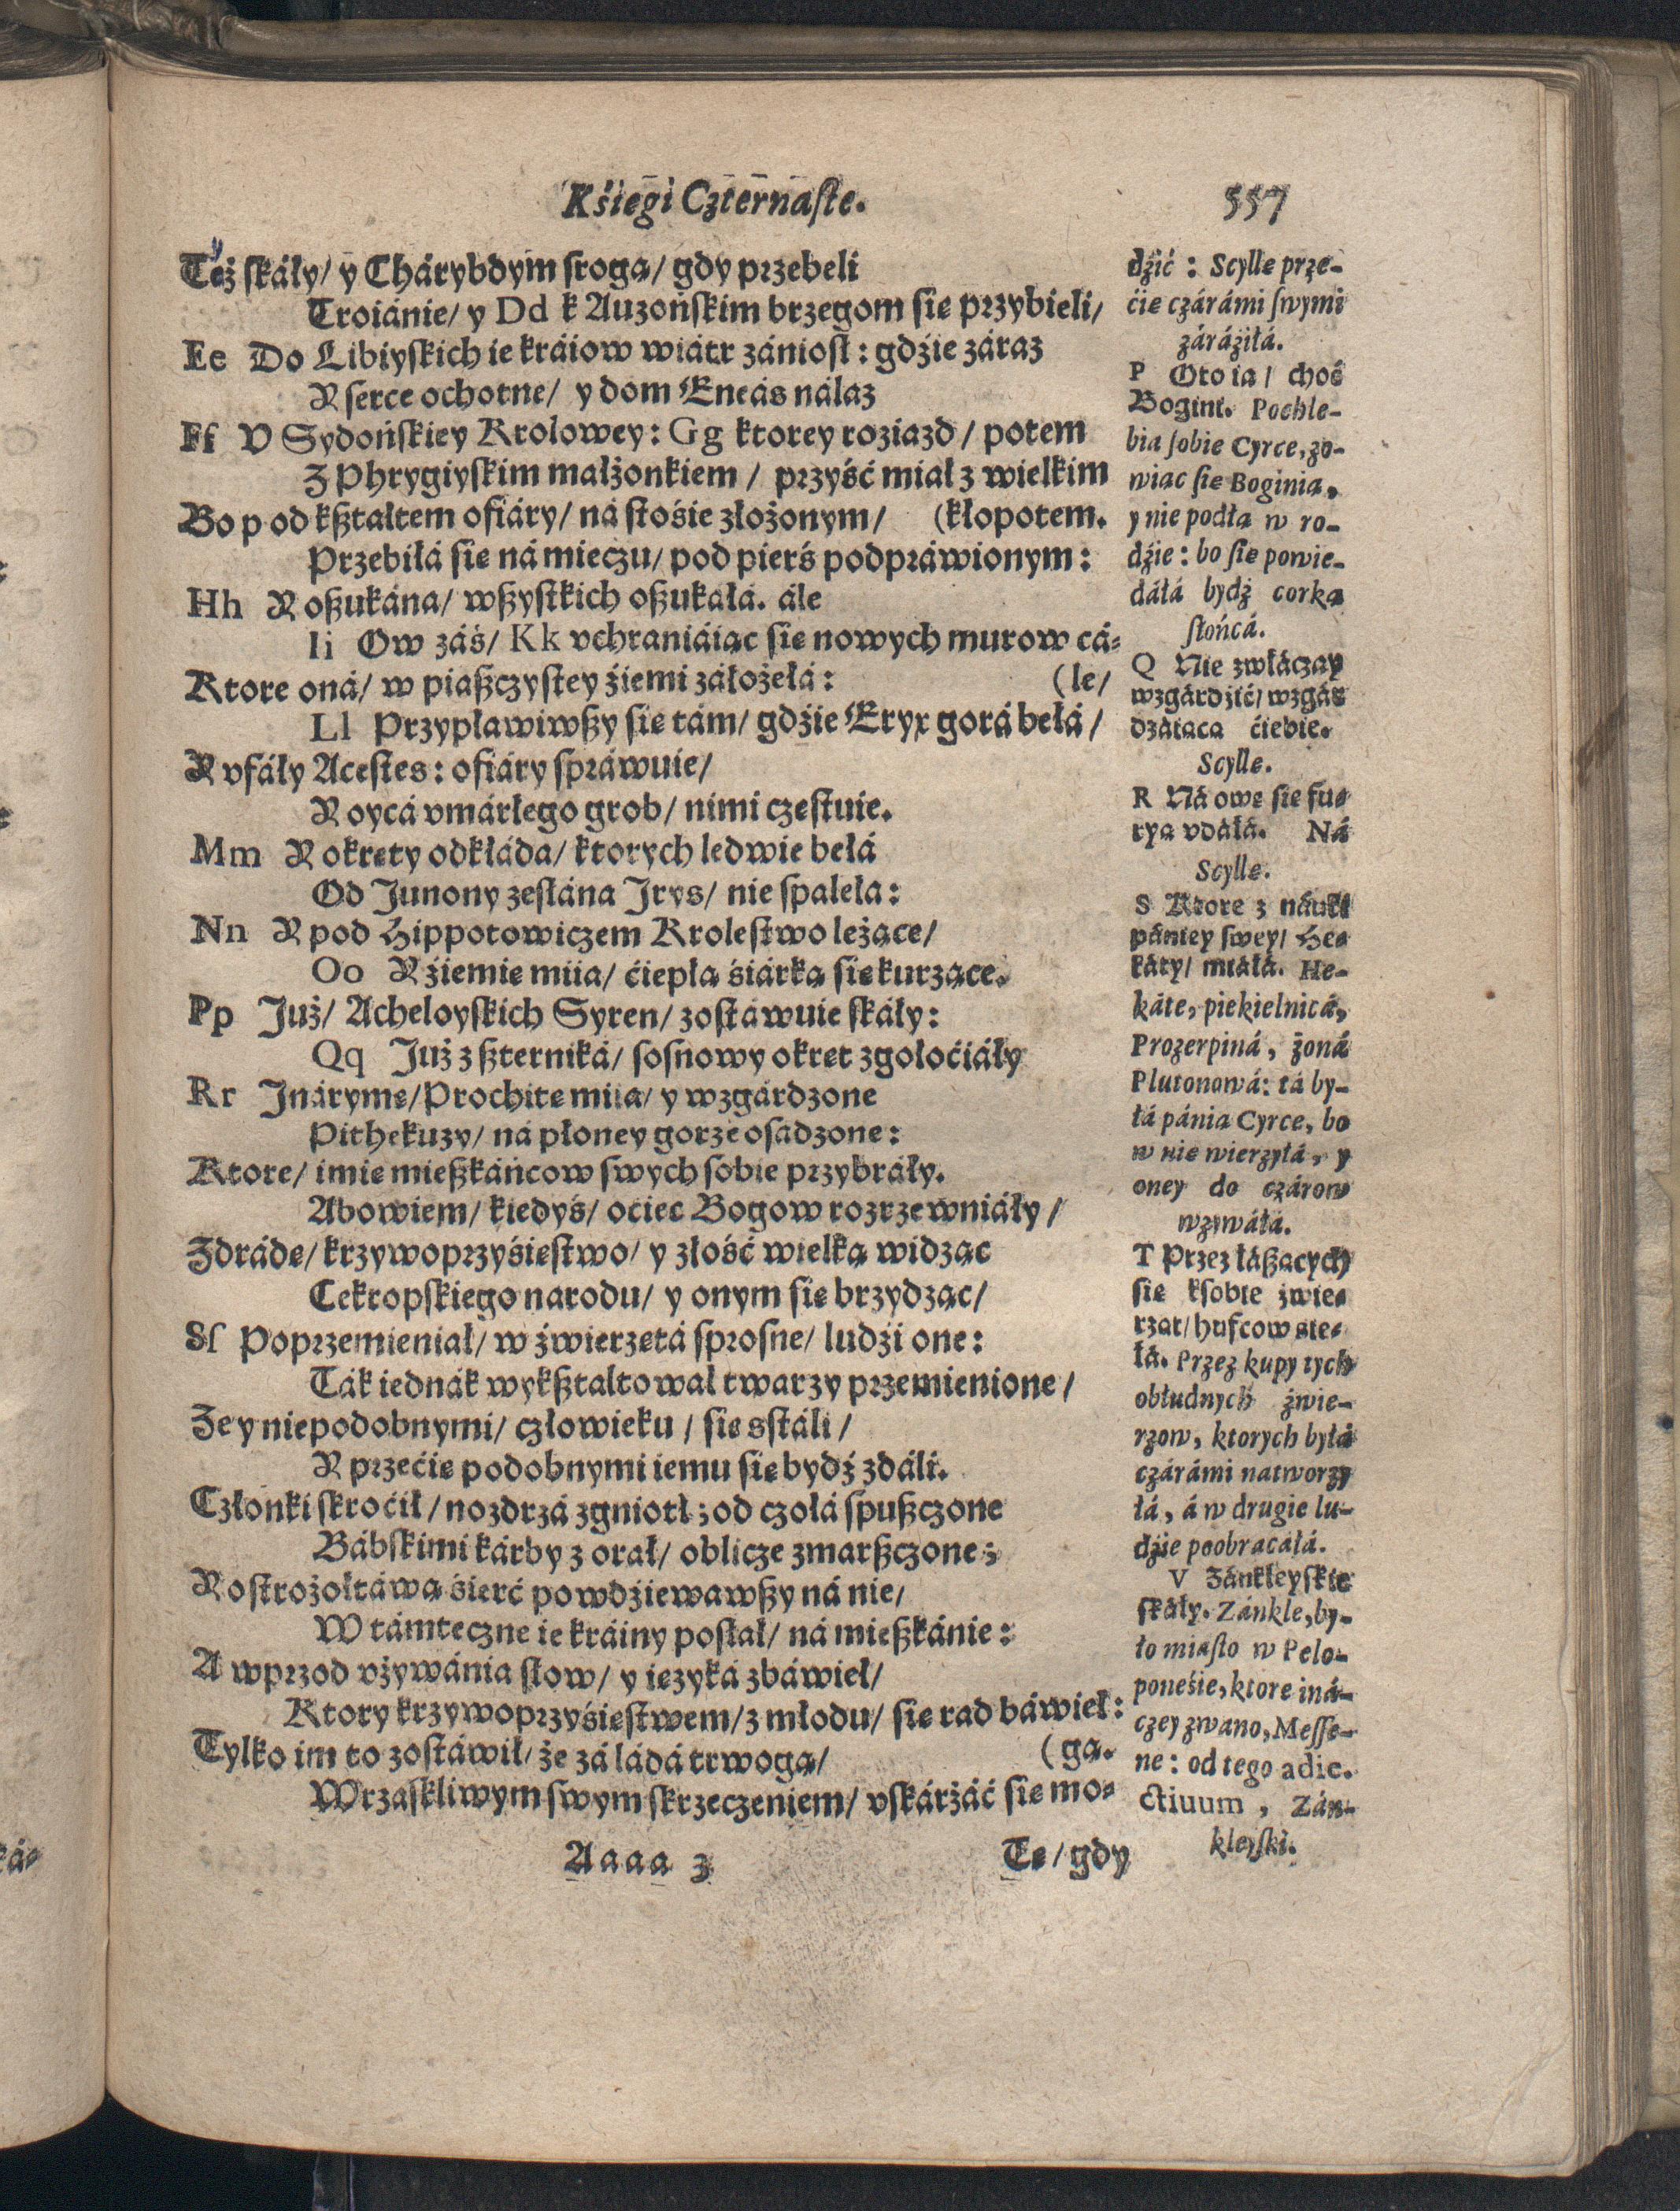 Kśięgi Cżternaſte.
557
Też ſkáły/ y Chárybdym ſrogą/ gdy przebeli
Troiánie/ y Dd k Auzońſkim brzegom ſię przybieli/
Ee Do Libiyſkich ie kráiow wiátr zánioſł: gdźie záraz
Y ſerce ochotne/ y dom Eneás nálaz
Ff V Sydońſkiey Krolowey: Gg ktorey roziazd/ potem
Z Phrygiyſkim małżonkiem/ przyść miał z wielkim
Bo pod kßtałtem ofiáry/ ná ſtośie złożonym/ (kłopotem.
Przebiłá ſię ná mieczu/ pod pierś podpráwionym:
Hh Y oßukána/ wßyſtkich oßukáłá. ále
Ii Ow záś/ Kk vchraniáiąc ſię nowych murow cá-
Ktore oná/ w piaßczyſtey źiemi záłożełá: (le/
Ll Przypławiwßy ſię tám/ gdźie Eryx gorá bełá/
Y vfáły Aceſtes: ofiáry ſpráwuie/
Y oycá vmárłego grob/ nimi czeſtuie.
Mm Y okręty odkłáda/ ktorych ledwie bełá
Od Junony zeſłána Jrys/ nie ſpalełá:
Nn Y pod Hippotowiczem Kroleſtwo leżące/
Oo Y źiemię miia/ ćiepłą śiárką ſię kurzące.
Pp Już/ Acheloyſkich Syren/ zoſtáwuie ſkáły:
Qq Już z ßterniká/ ſoſnowy okręt zgołoćiáły
Rr Jnárymę/ Prochitę miia/ y wzgárdzone
Pithekuzy/ ná płoney gorze oſadzone:
Ktore/ imię mießkáńcow ſwych ſobie przybráły.
Abowiem/ kiedyś/ ociec Bogow rozrzewniáły/
Zdrádę/ krzywoprzyśięſtwo/ y złość wielką widząc
Cekropſkiego narodu/ y onym ſię brzydząc/
Sſ Poprzemieniał/ w źwierzętá ſproſne/ ludźi one:
Ták iednák wykßtałtował twarzy przemienione/
Ze y niepodobnymi/ człowieku/ ſię sſtáli/
Y przećię podobnymi iemu ſię bydź zdáli.
Członki ſkroćił/ nozdrzá zgniotł; od czołá ſpußczone
Bábſkimi kárby zorał/ oblicze zmarßczone;
Y oſtrożołtáwą śierć powdźiewawßy ná nie/
W támteczne ie kráiny poſłał/ ná mießkánie:
A wprzod vżywánia ſłow/ y ięzyká zbáwieł/
Ktory krzywoprzyśięſtwem/ z młodu/ ſię rad báwieł:
Tylko im to zoſtáwił/ że zá ládá trwogą/ (gą.
Wrzaſkliwym ſwym ſkrzeczeniem/ vſkárżáć ſię mo-
Aaaa 3
Te/ gdy
dźić: Scyllę prze-
ćię czárámi ſwymi
záráźiłá.
P Oto ia/ choć
Bogini. Pochle-
bia ſobie Cyrce, zo-
wiąc ſię Boginią,
y nie podłą w ro-
dźie: bo ſię powie-
dáłá bydź corką
ſłońcá.
Q Nie zwłáczay
wzgárdźić/ wzgár
dzáiącą ćiebie.
Scyllę.
R Ná owę ſię fu-
ryą vdáłá. Ná
Scyllę.
S Ktore z náuki
pániey ſwey/ He-
káty/ miáłá. He-
káte, piekielnicá,
Prozerpiná, żoná
Plutonowá: tá by-
łá pánią Cyrce, bo
w nię wierzyłá, y
oney do czárow
wzywáłá.
T Przez łáßących
ſię kſobie źwie-
rząt/ hufcow ßie-
łá. Przez kupy tych
obłudnych źwie-
rzow, ktorych byłá
czárámi natworzy
łá, á w drugie lu-
dźie poobracáłá.
V Zánkleyſkie
ſkáły. Zánkle, by-
ło miáſto w Pelo-
poneśie, ktore iná-
czey zwano, Meſſe-
ne: od tego adie-
ctiuum, Zán-
kleyſki.